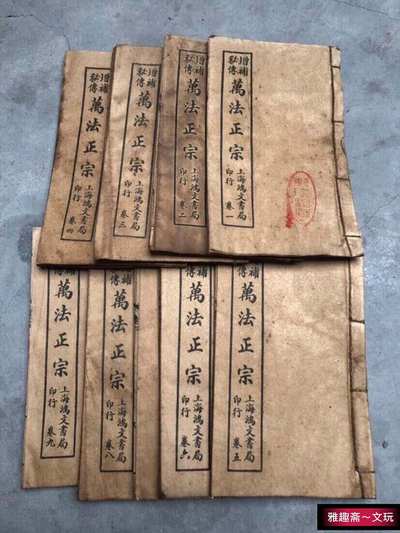 增補
秘傳
萬法正宗
上海鴻文書局
印行
卷一
增補
秘傳
萬法正宗
上海鴻文書局
印行
卷二
增補
秘傳
萬法正宗
上海鴻文書局
印行
卷三
增補
秘傳
萬法正宗
上海鴻文書局
印行
卷四
補
傳
萬法正宗
上海鴻文書局
印行
卷五
補
傳
萬法正宗
上海鴻文書局
印行
卷六
萬法正宗
上海鴻文書局
印行
卷八
補
傳
萬法正宗
上海鴻文書局
印行
卷九
雅趣斋～文玩